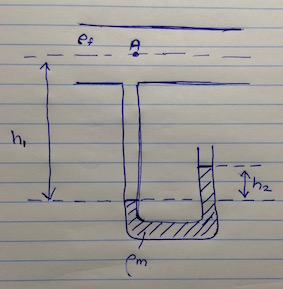 ρf
A
h₁
h₂
ρm